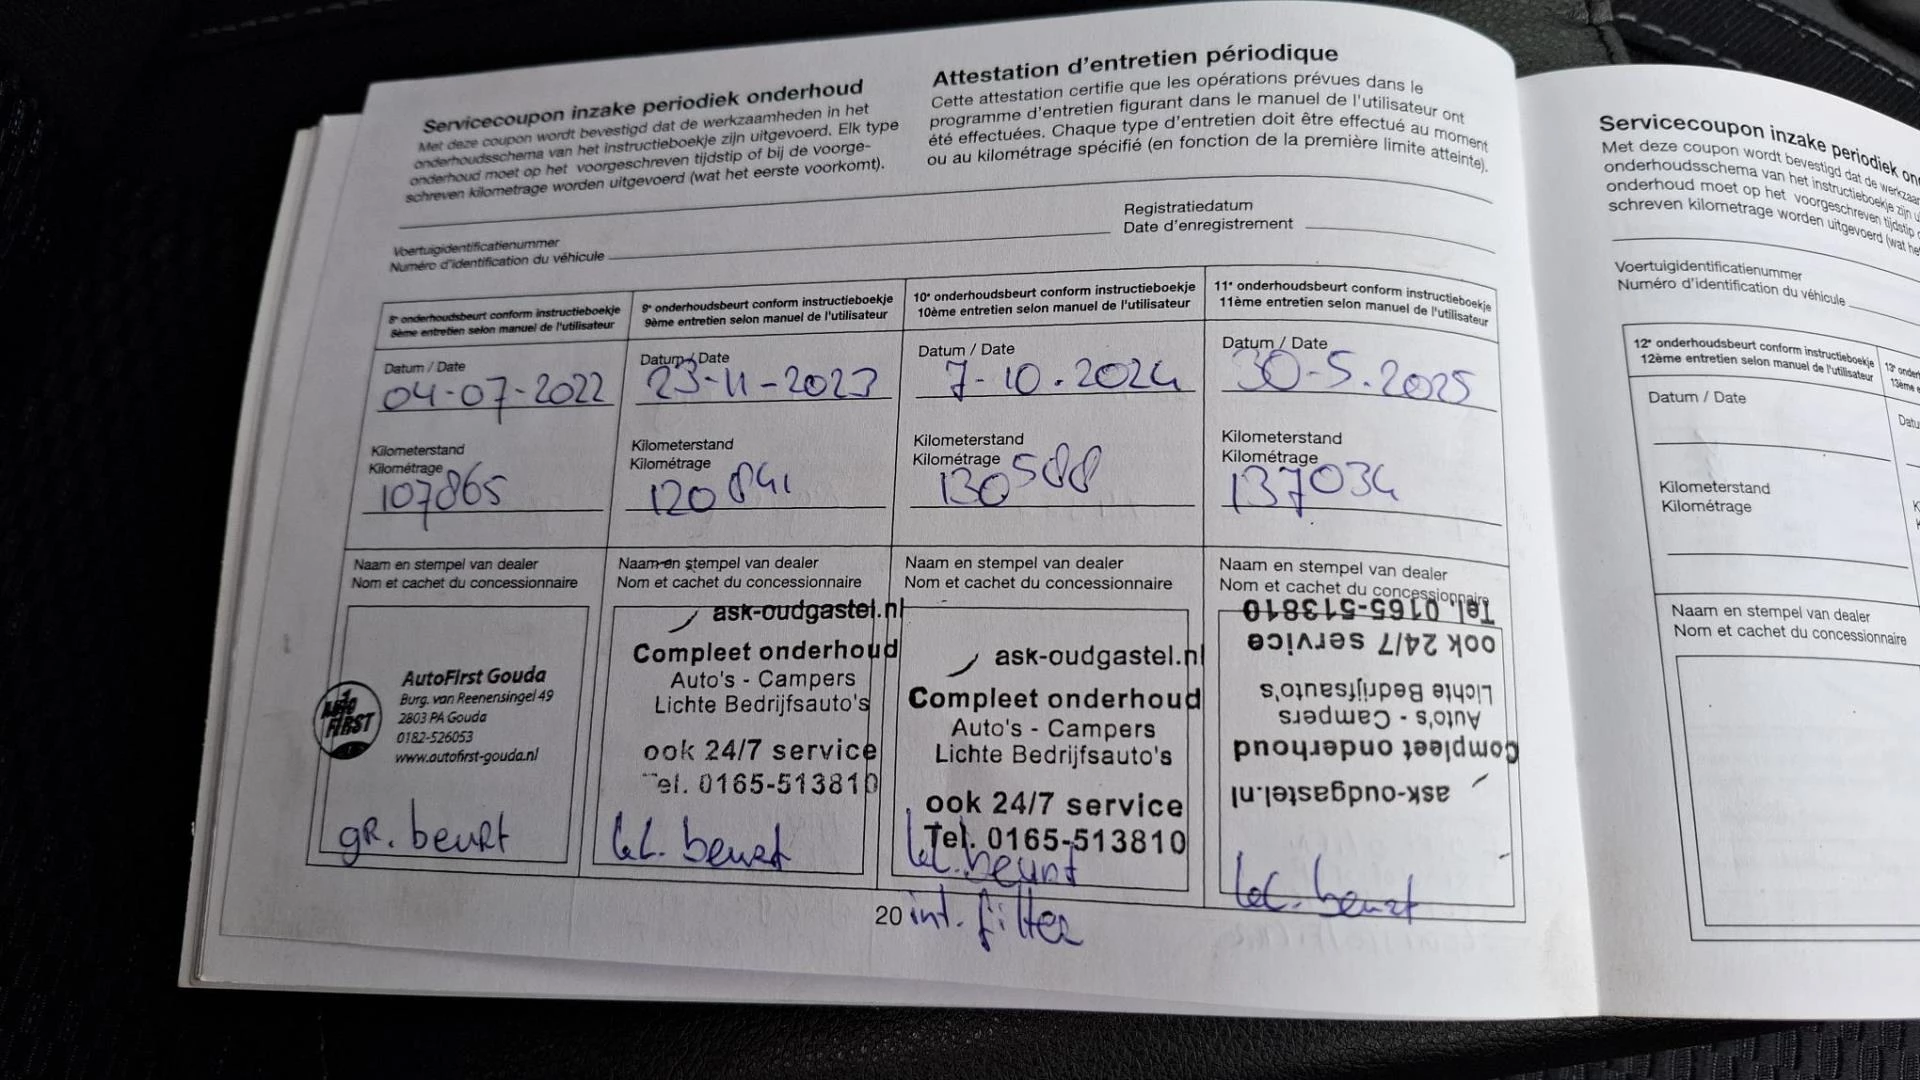 Servicecoupon inzake periodiek onderhoud
Met deze coupon wordt bevestigd dat de werkzaamheden in het
onderhoudsschema van het instructieboekje zijn uitgevoerd. Elk type
onderhoud moet op het voorgeschreven tijdstip of bij de voorge-
schreven kilometrage worden uitgevoerd (wat het eerste voorkomt).
Attestation d'entretien périodique
Cette attestation certifie que les opérations prévues dans le
programme d'entretien figurant dans le manuel de l'utilisateur ont
été effectuées. Chaque type d'entretien doit être effectué au moment
ou au kilométrage spécifié (en fonction de la première limite atteinte).
Voertuigidentificatienummer
Numéro d'identification du véhicule
Registratiedatum
Date d'enregistrement
8e onderhoudsbeurt conform instructieboekje
8ème entretien selon manuel de l'utilisateur
Datum / Date
04-07-2022
Kilometerstand
Kilométrage
107865
Naam en stempel van dealer
Nom et cachet du concessionnaire
Auto FIRST
AutoFirst Gouda
Burg. van Reenensingel 49
2803 PA Gouda
0182-526053
www.autofirst-gouda.nl
gR. beurt
9e onderhoudsbeurt conform instructieboekje
9ème entretien selon manuel de l'utilisateur
Datum / Date
23-11-2023
Kilometerstand
Kilométrage
120841
Naam en stempel van dealer
Nom et cachet du concessionnaire
ask-oudgastel.nl
Compleet onderhoud
Auto's - Campers
Lichte Bedrijfsauto's
ook 24/7 service
Tel. 0165-513810
kL. beurt
10e onderhoudsbeurt conform instructieboekje
10ème entretien selon manuel de l'utilisateur
Datum / Date
7-10.2024
Kilometerstand
Kilométrage
130588
Naam en stempel van dealer
Nom et cachet du concessionnaire
ask-oudgastel.nl
Compleet onderhoud
Auto's - Campers
Lichte Bedrijfsauto's
ook 24/7 service
Tel. 0165-513810
kL. beurt
int. filter
11e onderhoudsbeurt conform instructieboekje
11ème entretien selon manuel de l'utilisateur
Datum / Date
30-5.2025
Kilometerstand
Kilométrage
137034
Naam en stempel van dealer
Nom et cachet du concessionnaire
ask-oudgastel.nl
Compleet onderhoud
Auto's - Campers
Lichte Bedrijfsauto's
ook 24/7 service
Tel. 0165-513810
kL. beurt
20
Servicecoupon inzake periodiek
Met deze coupon wordt bevestigd dat de
onderhoudsschema van het instructieboekje zijn
onderhoud moet op het voorgeschreven tijdstip
schreven kilometrage worden uitgevoerd (wat
Voertuigidentificatienummer
Numéro d'identification du véhicule
12e onderhoudsbeurt conform instructieboekje
12ème entretien selon manuel de l'utilisateur
Datum / Date
Kilometerstand
Kilométrage
Naam en stempel van dealer
Nom et cachet du concessionnaire
13e
13ème